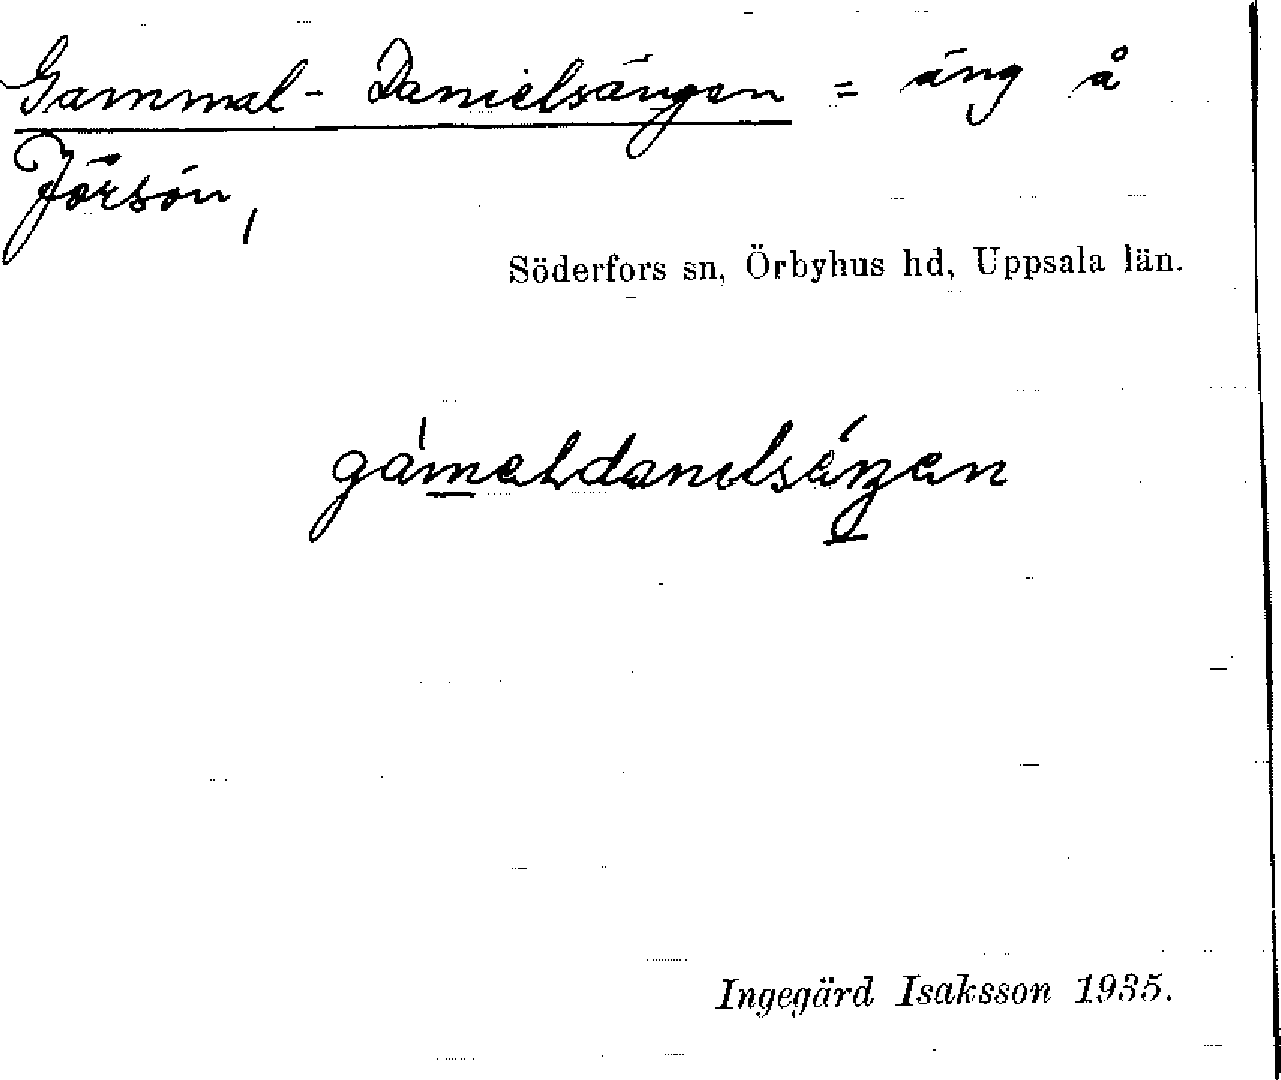 Gammal-Danielsängen = äng å
Jörsön,
Söderfors sn, Örbyhus hd, Uppsala län.
Ingegärd Isaksson 1935.